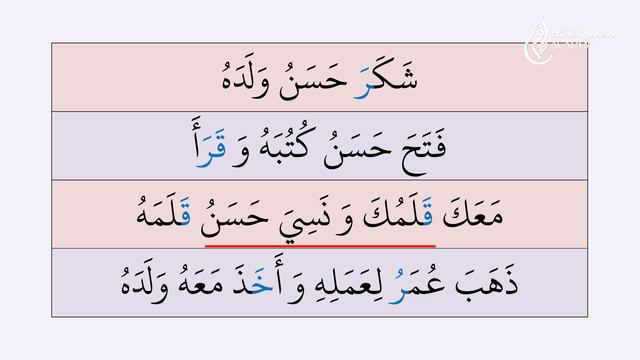 شَكَرَ حَسَنُ وَلَدَهُ
فَتَحَ حَسَنُ كُتُبَهُ وَ قَرَأَ
مَعَكَ قَلَمُكَ وَ نَسِيَ حَسَنُ قَلَمَهُ
ذَهَبَ عُمَرُ لِعَمَلِهِ وَ أَخَذَ مَعَهُ وَلَدَهُ